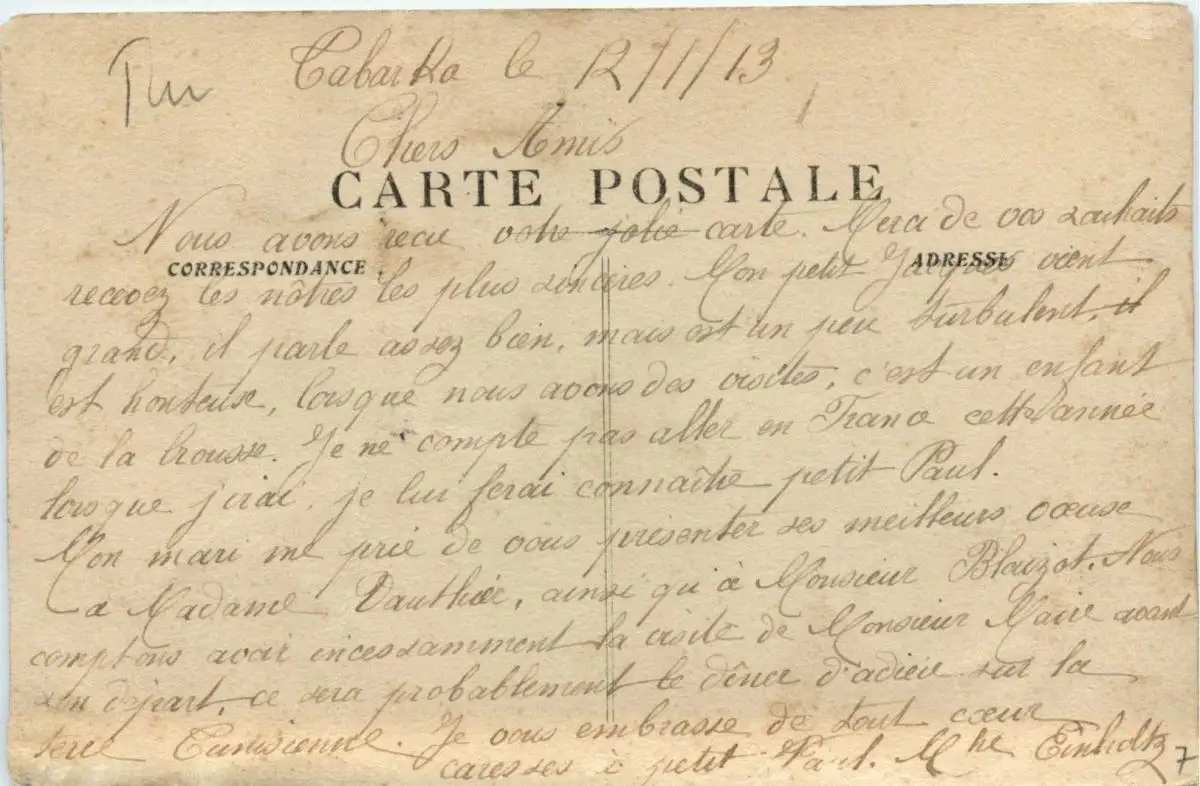 Tun
Tabarka le 12/1/13
Chers Amis
CARTE POSTALE
Nous avons reçu votre jolie carte. Merci de vos souhaits
CORRESPONDANCE
ADRESSE
recevez les nôtres les plus sincères. Mon petit Jacques vient
grand, il parle assez bien, mais est un peu turbulent, il
est honteuse, lorsque nous avons des visites, c'est un enfant
de la brousse. Je ne compte pas aller en France cette année
lorsque j'irai, je lui ferai connaître petit Paul.
Mon mari me prie de vous présenter ses meilleurs voeuse
a Madame Vauthier, ainsi qu'à Monsieur Blaizot. Nous
comptons avoir incessamment la visite de Monsieur Maire avant
son départ, ce sera probablement le dîner d'adieu sur la
terre Tunisienne. Je vous embrasse de tout cœur
caresses à petit Paul. Mhe Einholtz
7